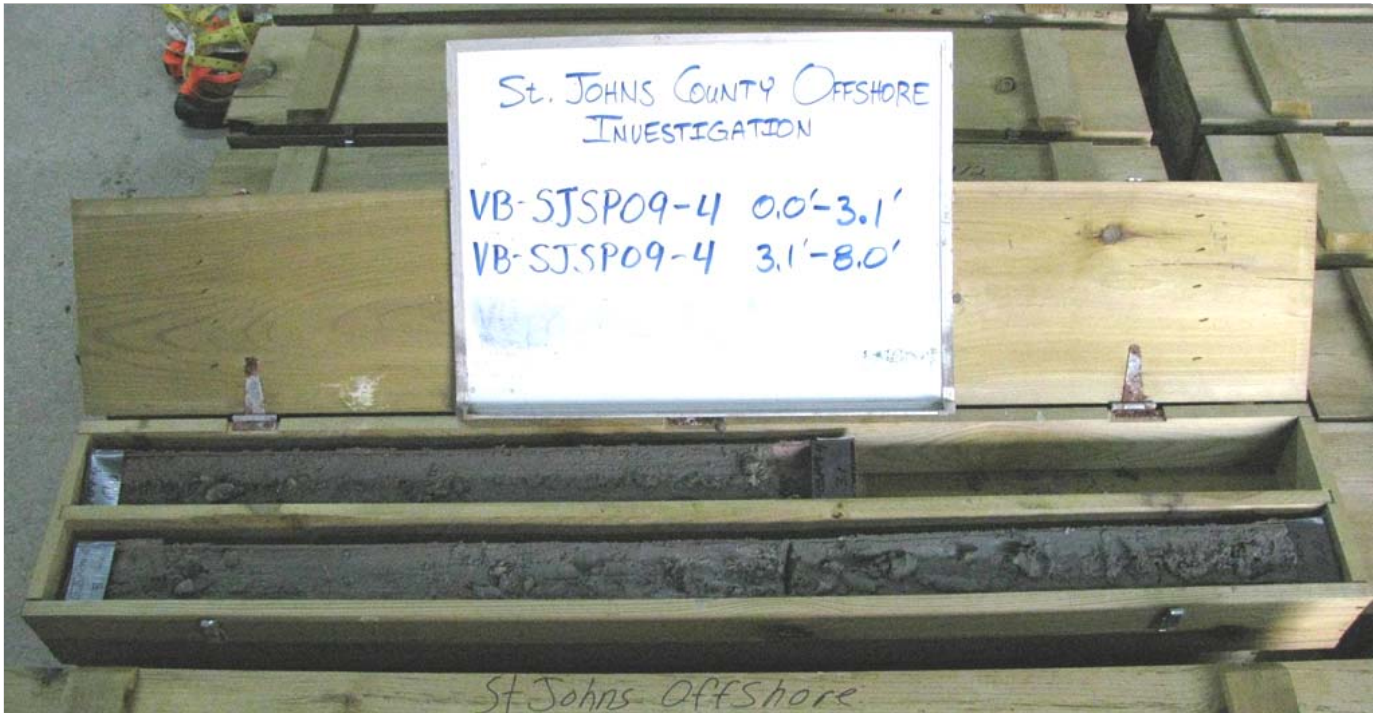 St. JOHNS COUNTY OFFSHORE
INVESTIGATION
VB-SJSP09-4 0.0'-3.1'
VB-SJSP09-4 3.1'-8.0'
St Johns Offshore